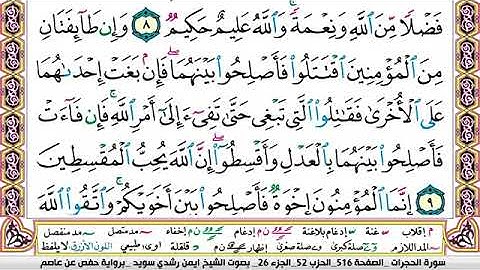 فَضۡلٗا مِّنَ ٱللَّهِ وَنِعۡمَةٗۚ وَٱللَّهُ عَلِيمٌ حَكِيمٞ ٨ وَإِن طَآئِفَتَانِ
مِنَ ٱلۡمُؤۡمِنِينَ ٱقۡتَتَلُواْ فَأَصۡلِحُواْ بَيۡنَهُمَاۖ فَإِنۢ بَغَتۡ إِحۡدَىٰهُمَا
عَلَى ٱلۡأُخۡرَىٰ فَقَٰتِلُواْ ٱلَّتِي تَبۡغِي حَتَّىٰ تَفِيٓءَ إِلَىٰٓ أَمۡرِ ٱللَّهِۚ فَإِن فَآءَتۡ
فَأَصۡلِحُواْ بَيۡنَهُمَا بِٱلۡعَدۡلِ وَأَقۡسِطُوٓاْۖ إِنَّ ٱللَّهَ يُحِبُّ ٱلۡمُقۡسِطِينَ
٩ إِنَّمَا ٱلۡمُؤۡمِنُونَ إِخۡوَةٞ فَأَصۡلِحُواْ بَيۡنَ أَخَوَيۡكُمۡۚ وَٱتَّقُواْ ٱللَّهَ
م إقلاب غنة إدغام بلاغنة ن م إدغام ن م إخفاء مد متصل مد منفصل
المد اللازم صلة كبرى وي صلة صغرى إظهار ن م قلقلة اوى طبيعي اللون الأزرق لا يلفظ
سورة الحجرات _الصفحة 516_الحزب 52_الجزء 26_ بصوت الشيخ ايمن رشدي سويد _برواية حفص عن عاصم